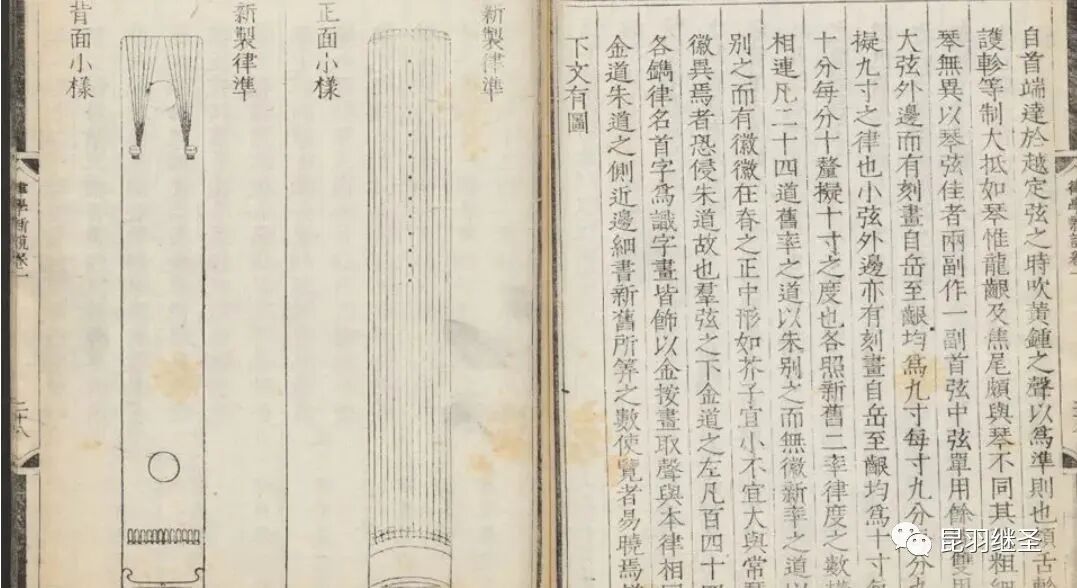 自首端達於越定弦之時吹黃鍾之聲以爲準則也額舌
護軫等制大抵如琴惟龍齦及焦尾頗與琴不同其粗細
琴無異以琴弦佳者兩副作一副首弦中弦單用餘雙
大弦外邊而有刻畫自岳至齦均爲九寸每寸九分
擬九寸之律也小弦外邊亦有刻畫自岳至齦均爲十寸每
十分每分十釐擬十寸之度也各照新舊二率律度之數
相連凡二十四道舊率之道以朱別之而無徽新率之道
別之而有徽徽在脊之正中形如芥子宜小不宜大與常
徽異焉者恐侵朱道故也羣弦之下金道之左凡百四十
各鐫律名首字爲識字畫皆飾以金按畫取聲與本律相
金道朱道之側近邊細書新舊所筭之數使覽者易曉焉
下文有圖
新製律準
正面小樣
新製律準
背面小樣
律學新說卷一
二十八
昆羽继圣